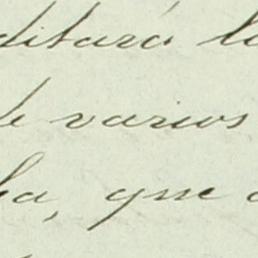 ditará la
de varios
ha, que